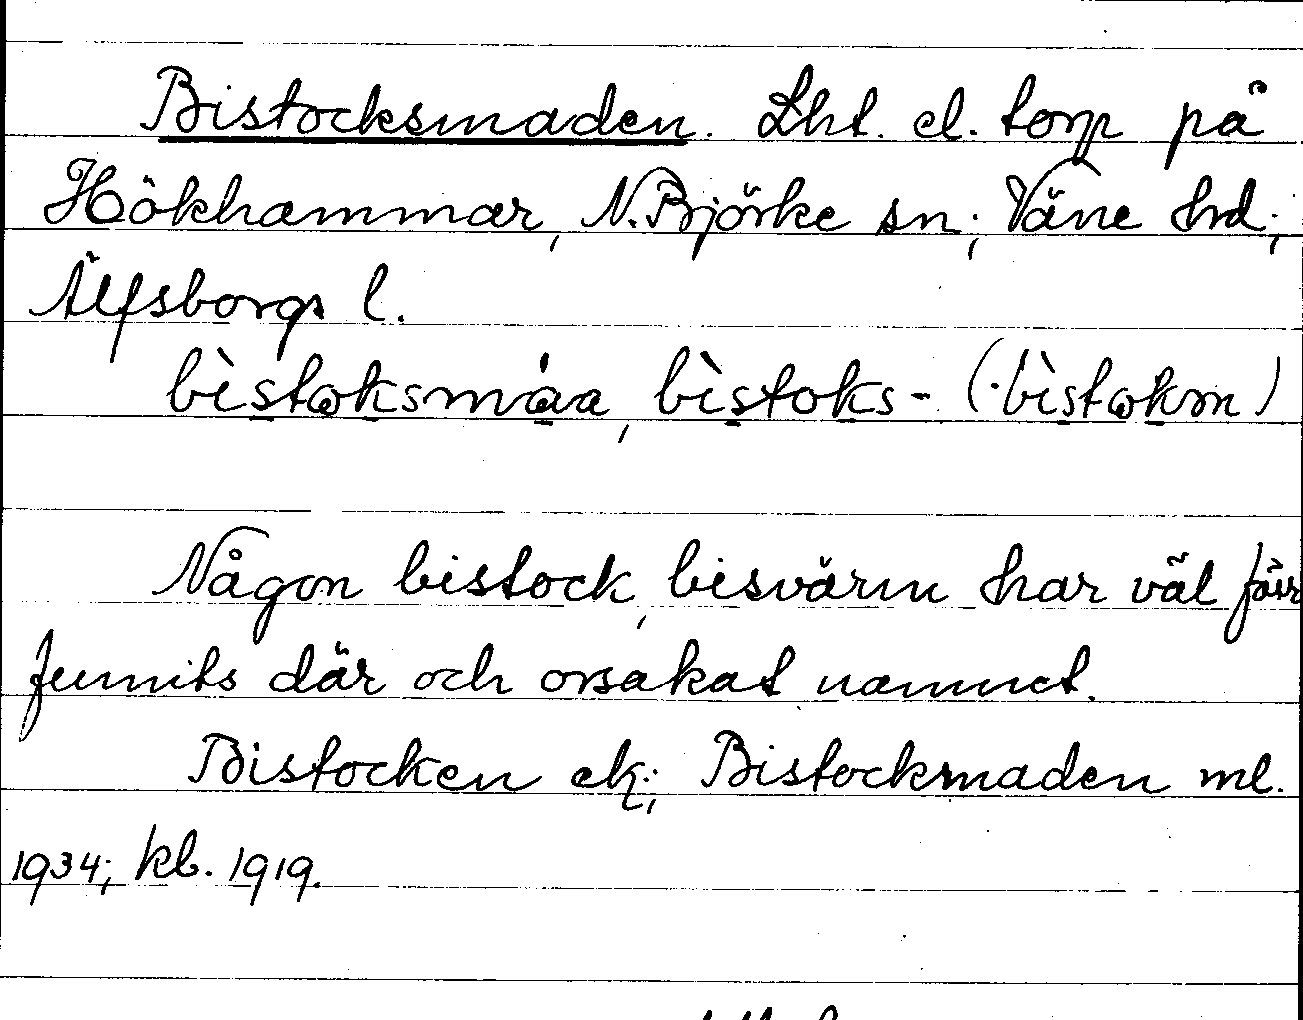 Bistocksmaden. Lht. el. torp på
Hökhammar, N. Björke sn; Väne hd;
Älfsborgs l.
bìstoksmáa, bìstoks- (·bìstokm)
Någon bistock, bisvärm har väl förr
funnits där och orsakat namnet.
Bistocken ek; Bistockmaden ml.
1934; kb. 1919.